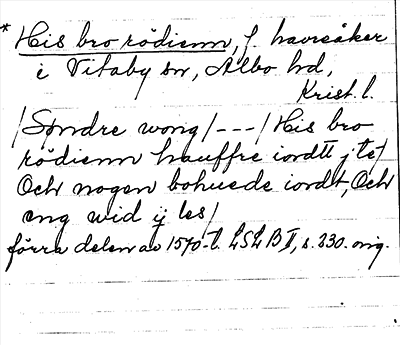 * His bro rödienn, f. havreåker
i Vitaby sn, Albo hd,
Krist. l.
/Søndre wong/ --- / His bro
rödienn hauffre iordtt j te/
Och nogen bohuede iordt, Och
eng wid ij les/
förra delen av 1570-t. LSLB II, s. 330. orig.